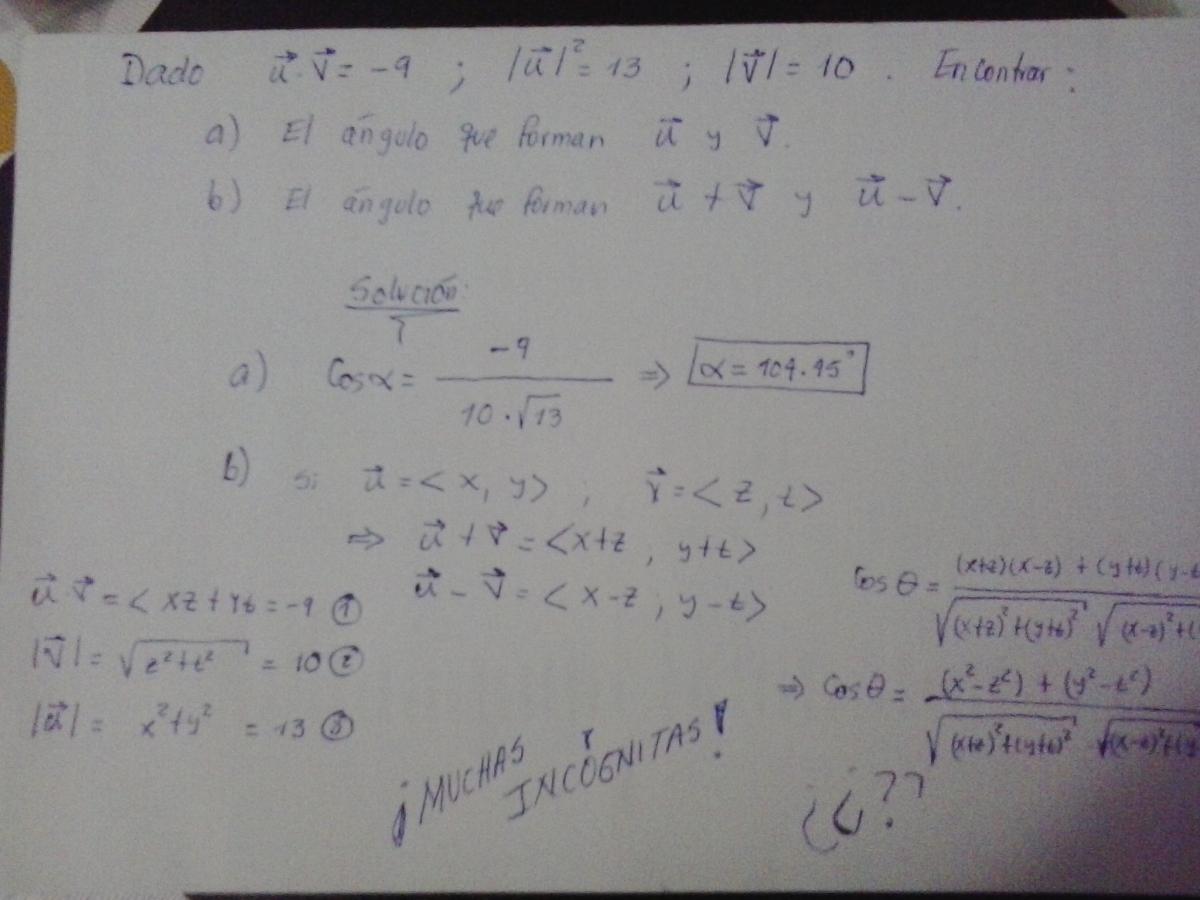 Dado u⃗·v⃗ = -9 ; |u⃗|² = 13 ; |v⃗| = 10 . Encontrar:
a) El ángulo que forman u⃗ y v⃗.
b) El ángulo que forman u⃗ + v⃗ y u⃗ - v⃗.
Solución:
a) Cosα = -9 / 10·√13 ⇒ α = 104.45°
b) Si u⃗ = <x, y> ; v⃗ = <z, t>
⇒ u⃗ + v⃗ = <x+z, y+t>
u⃗ - v⃗ = <x-z; y-t>
u⃗ v⃗ = < xz + yt = -9 ①
|v⃗| = √z²+t² = 10 ②
|u⃗| = x²+y² = 13 ③
Cos θ = (x+z)(x-z) + (y+t)(y-t / √(x+z)²+(y+t)² √(x-z)²+(
⇒ Cosθ = (x²-z²) + (y²-t²) / √(x+z)²+(y+t)² √(x-z)²+(y
¡MUCHAS
INCÓGNITAS!
¿¿??